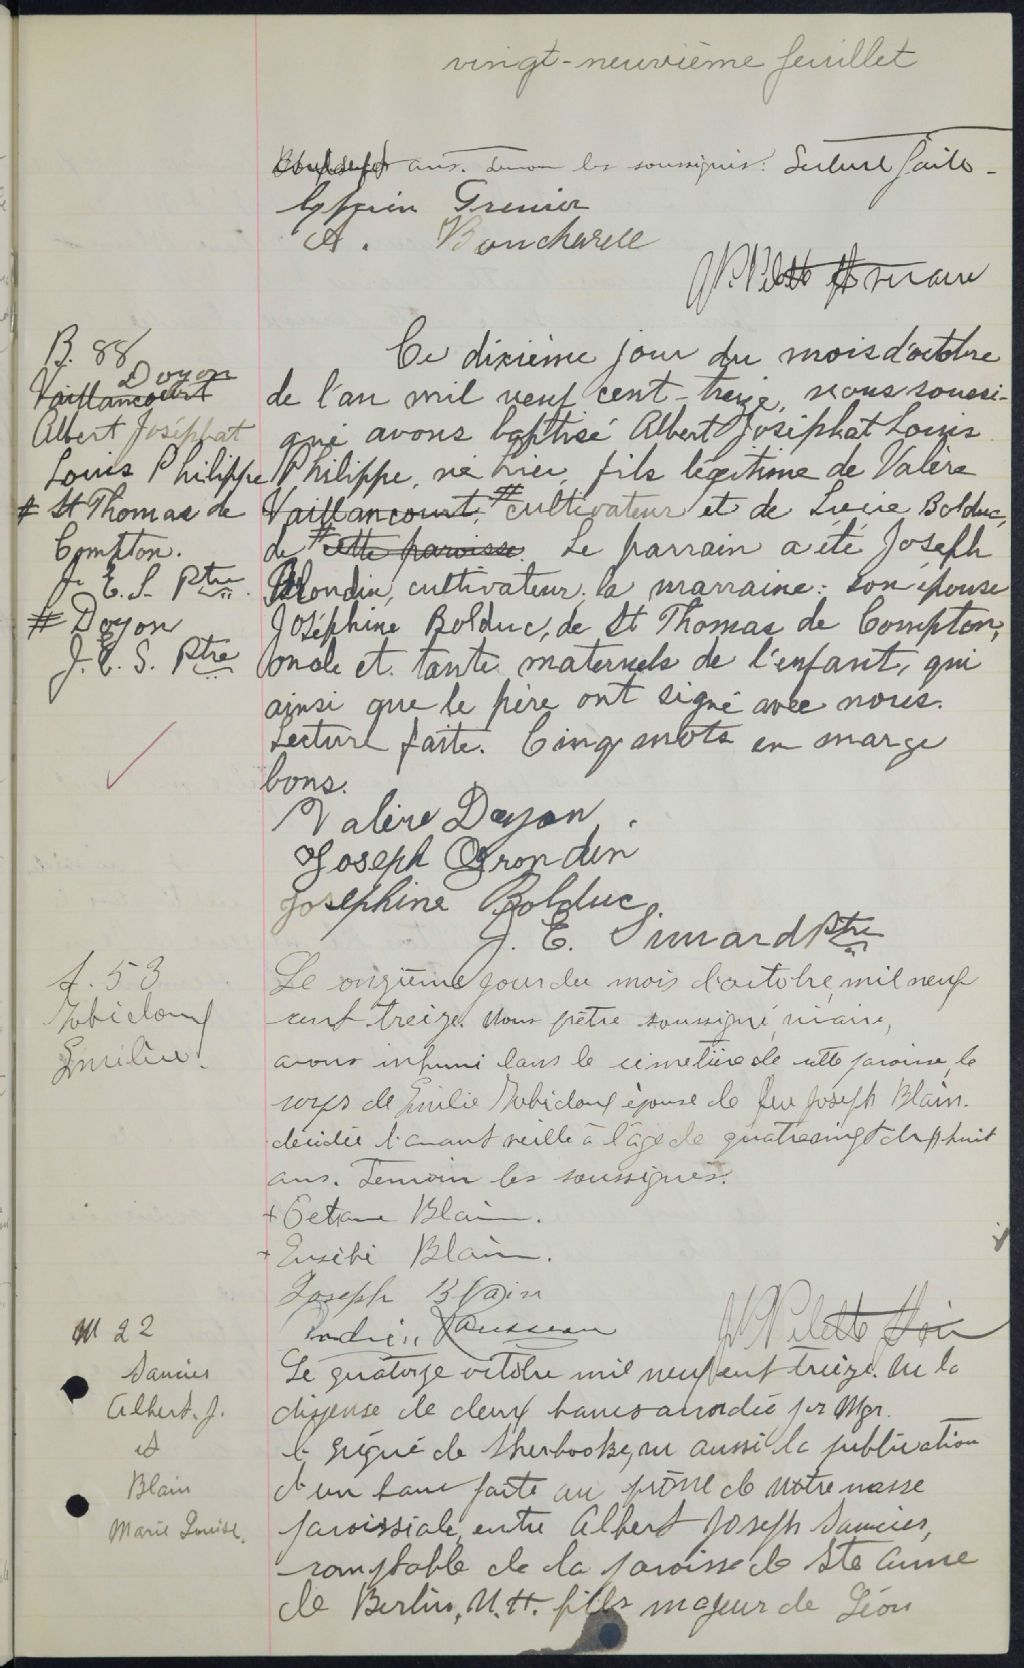 vingt-neuvième feuillet
ans. les soussignés. Lecture faite -
Grenier
A. Boucharde
B. 88
Doyon
Vaillancourt
Albert Joséphat
Louis Philippe
# St Thomas de
Compton.
J. E. S. Ptre
# Doyon
J. E. S. Ptre
Ce dixième jour du mois d'octobre
de l'an mil neuf cent-treize, nous soussi-
gné avons baptisé Albert Joséphat Louis
Philippe, né hier, fils légitime de Valère
Vaillancourt, # cultivateur et de Lucie Bolduc,
de # cette paroisse. Le parrain a été Joseph
cultivateur; la marraine: son épouse
Joséphine Bolduc, de St Thomas de Compton,
oncle et tante maternels de l'enfant, qui
ainsi que le père ont signé avec nous.
Lecture faite. Cinq mots en marge
bons.
Valère Doyon
Joseph Grondin
Josephine Bolduc
J. E. Simard Ptre
S. 53
Robidoux
Emilie.
Le onzième jour du mois d'octobre, mil neuf
cent treize. Nous prêtre soussigné, vicaire,
avons inhumé dans le cimetière de cette paroisse, le
corps de Emilie Robidoux épouse de feu Joseph Blain.
décédée l'avant veille à l'âge de quatrevingt
ans. Temoin les soussignés.
+ Blain.
+ Eusèbe Blain.
Joseph Blain
Rousseau
M 22
Saucier
Albert. J.
et
Blain
Marie Louise.
Le quatorze octobre mil neuf cent treize. Vu la
dispense de deux bancs accordée par Mgr.
l'évêque de Sherbrooke, vu aussi la publication
d'un banc faite au prône de notre messe
paroissiale, entre Albert Joseph Saucier,
comptable de la paroisse de Ste Anne
de Berlin, N.H. fils majeur de Léon